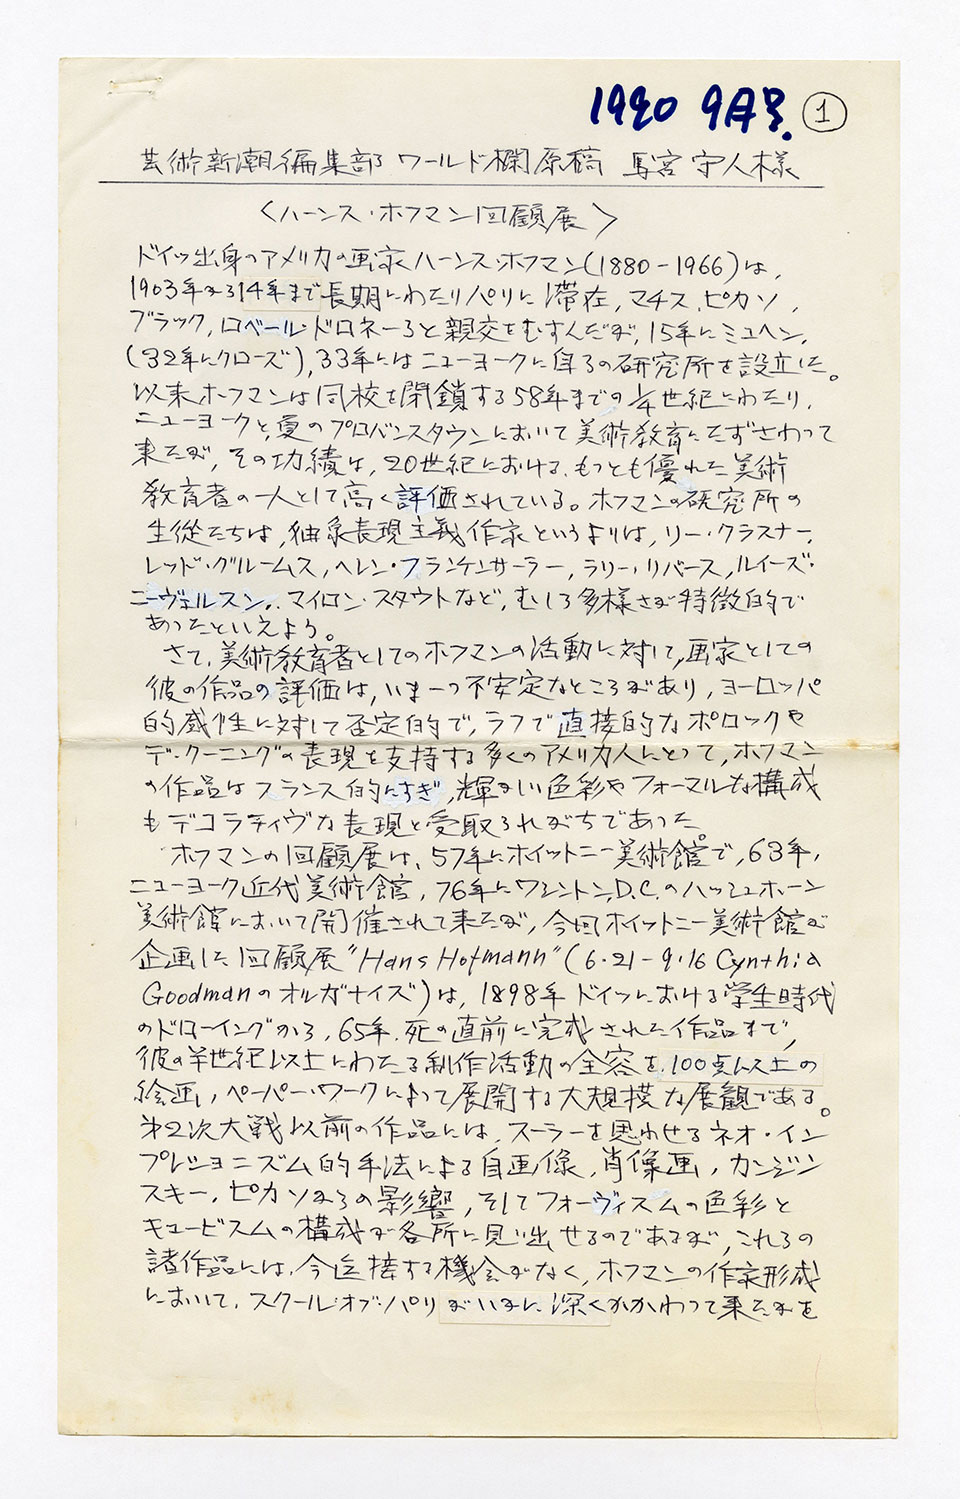 1990 9月号. ①
芸術新潮編集部 ワールド欄原稿 馬宮守人様
〈ハーンス・ホフマン回顧展〉
ドイツ出身のアメリカの画家ハーンス・ホフマン(1880-1966)は、
1903年から14年まで長期にわたりパリに滞在、マチス、ピカソ、
ブラック、ロベール・ドロネーらと親交をむすんだが、15年にミュヘン、
(32年にクローズ)、33年にはニューヨークに自らの研究所を設立した。
以来ホフマンは同校を閉鎖する58年までの¼世紀にわたり、
ニューヨークと、夏のプロバンスタウンにおいて美術教育にたずさわって
来たが、その功績は、20世紀における、もっとも優れた美術
教育者の一人として高く評価されている。ホフマンの研究所の
生従たちは、抽象表現主義作家というよりは、リー・クラスナー、
レッド・グルームス、ヘレン・フランケンサーラー、ラリー・リバース、ルイーズ・
ニーヴェルスン、マイロン・スタウトなど、むしろ多様さが特徴的で
あったといえよう。
さて、美術教育者としてのホフマンの活動に対して、画家としての
彼の作品の評価は、いま一つ不安定なところがあり、ヨーロッパ
的感性に対して否定的で、ラフで直接的なポロックや
デ・クーニングの表現を支持する多くのアメリカ人にとって、ホフマン
の作品はフランス的にすぎ、輝かしい色彩やフォーマルな構成
もデコラティヴな表現と受取られがちであった。
ホフマンの回顧展は、57年にホイットニー美術館で、63年、
ニューヨーク近代美術館、76年にワシントン、D.C.のハッシュホーン
美術館において開催されて来たが、今回ホイットニー美術館が
企画した回顧展"Hans Hofmann"(6・21-9・16 Cynthia
Goodmanのオルガナイズ)は、1898年ドイツにおける学生時代
のドローイングから、65年、死の直前に完成された作品まで、
彼の半世紀以上にわたる制作活動の全容を、100点以上の
絵画、ペーパー・ワークによって展開する大規模な展観である。
第2次大戦以前の作品には、スーラーを思わせるネオ・イン
プレショニズム的手法による自画像、肖像画、カンジン
スキー、ピカソからの影響、そしてフォーヴィスムの色彩と
キュービスムの構成が各所に見い出せるのであるが、これらの
諸作品には、今迄接する機会がなく、ホフマンの作家形成
において、スクール・オブ・パリがいかに深くかかわって来たかを